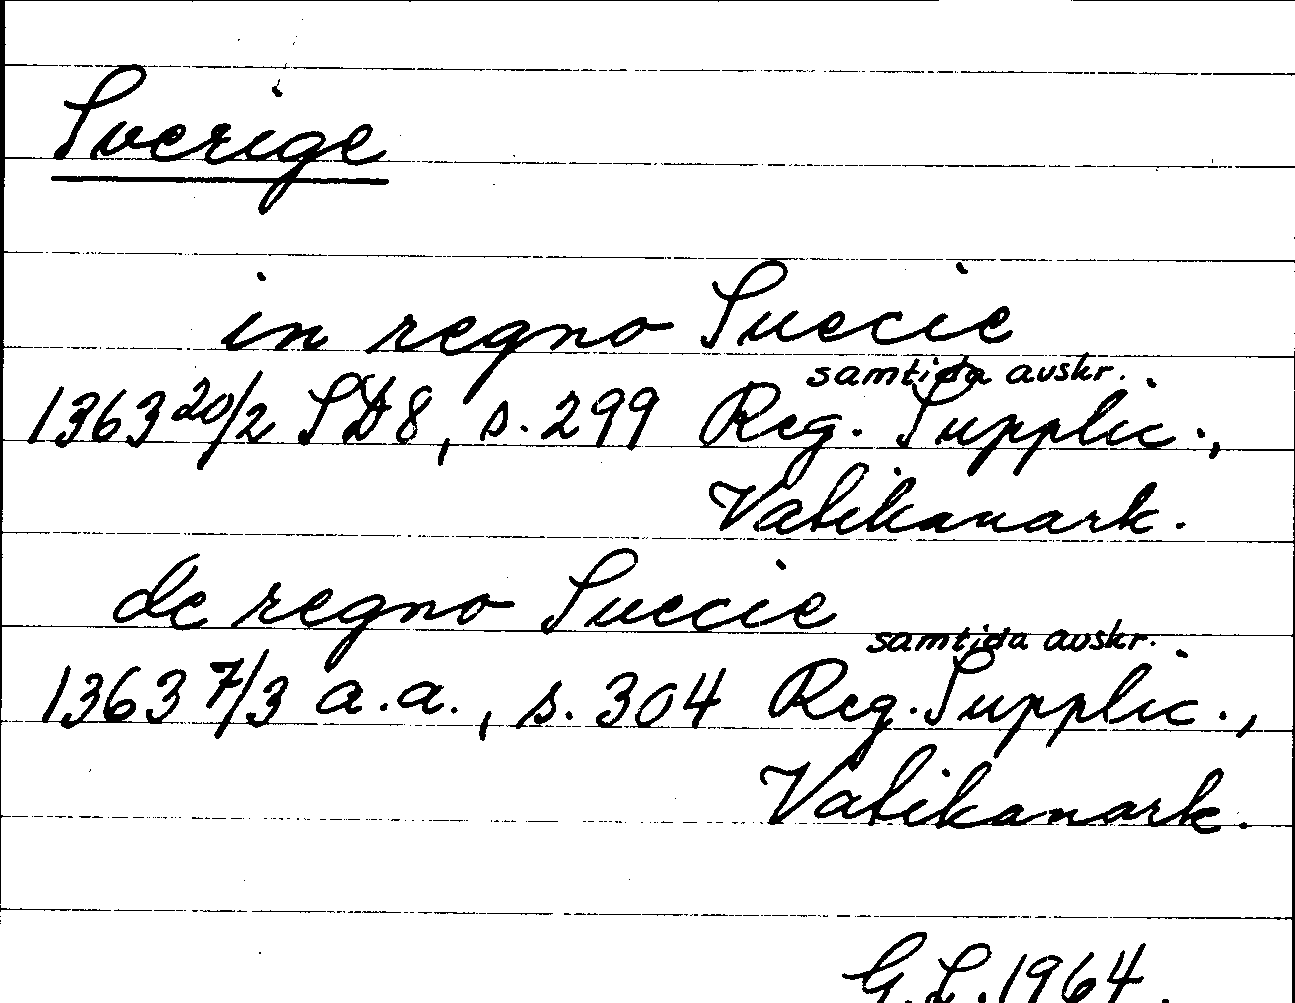 Sverige
in regno Suecie
samtida avskr.
1363 20/2 SD8, s. 299 Reg. Supplic.,
Vatikanark.
de regno Suecie
samtida avskr.
1363 7/3 a.a., s. 304 Reg. Supplic.,
Vatikanark.
G.L. 1964.